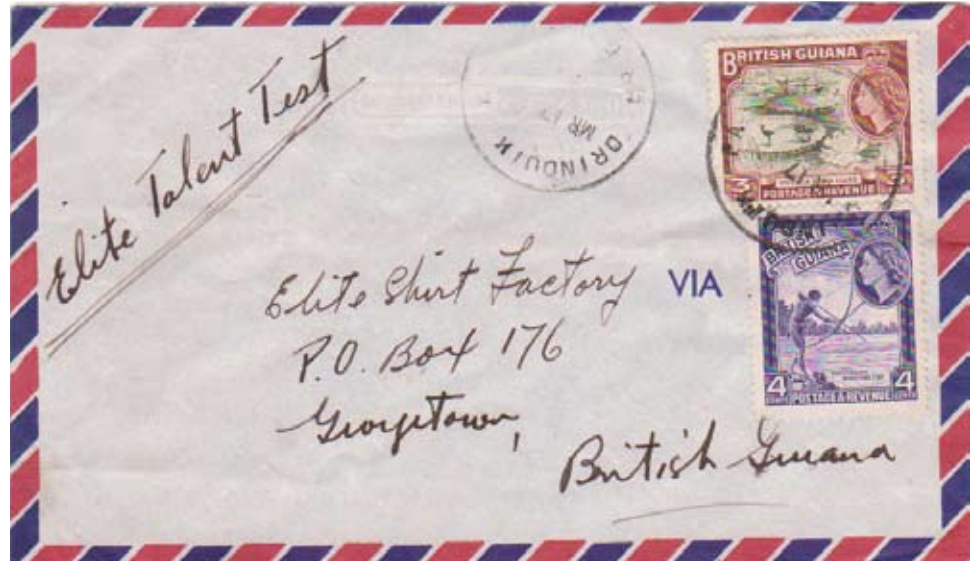 Elite Talent Test
ORINDUIK
MR 17
BRITISH GUIANA
3
POSTAGE & REVENUE
VIA
BRITISH
GUIANA
4 4
POSTAGE & REVENUE
Elite Shirt Factory
P.O. Box 176
Georgetown,
British Guiana